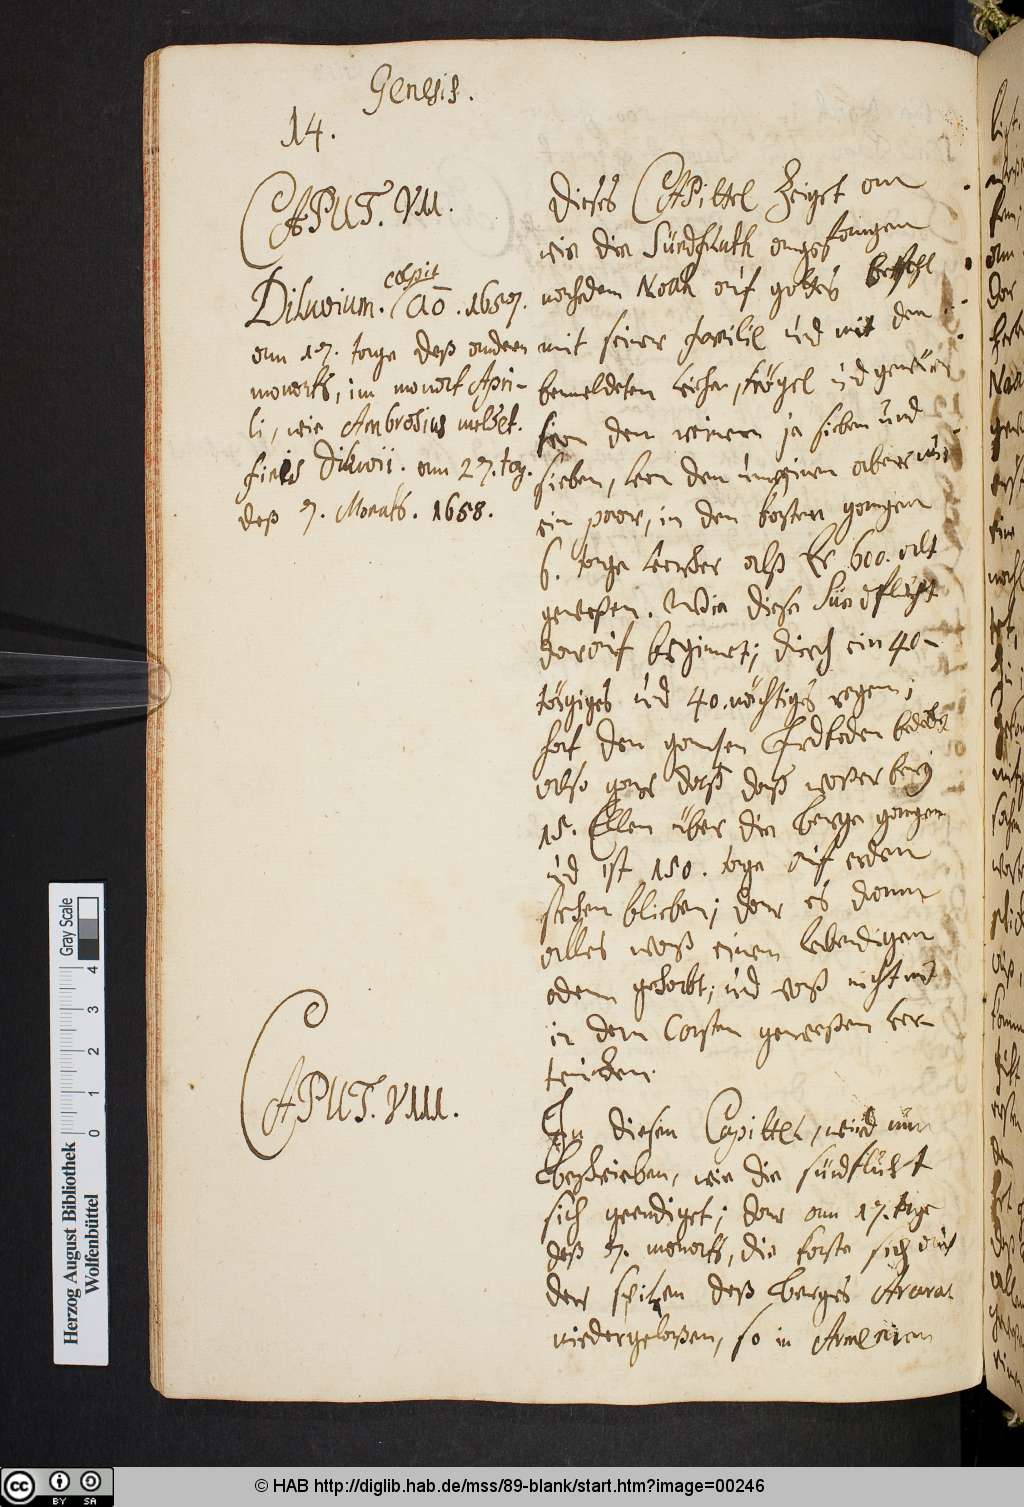 Genesis.
14.
CAPUT. VII.
cœpit
Diluvium. aõ. 1657.
am 17. tage deß andern
monats, im monat Apri-
li, wie Ambrosius meldet.
finis Diluvii. am 27. tag.
deß 7. Monats. 1658.
CAPUT. VIII.
Dieses CAPittel Zeiget an
wie die Sündfluth angefangen
nachdem Noah auf gottes befehl
mit seiner familie und mit den
bemeldeten Vögel und
von den reinen je sieben und
sieben, von den unreinen aber
ein paar, in den kasten gangen
6. tage alß Er 600. alt
gewesen. Wie diese Sündflucht
darauf beginnet; durch ein 40-
tägiges und 40. nächtiges regen;
hat den gantzen Erdboden bedeckt
also gar daß daß waßer
15. Ellen über die berge gangen
und ist 150. tage auf erden
stehen blieben; da es dann
alles waß einen lebendigen
odem gehabt; und waß nicht
in dem Casten geweßen ver-
truncken.
In diesen Capittel, wird nun
beschrieben, wie die sündflucht
sich geendiget; da am 17. tage
deß 7. monats, die kaste sich auf
der spitzen deß berges Ararat
niedergelaßen, so in Armenien
Herzog August Bibliothek
Wolfenbüttel
Gray Scale
0 1 2 3 4
cc BY SA
© HAB http://diglib.hab.de/mss/89-blank/start.htm?image=00246